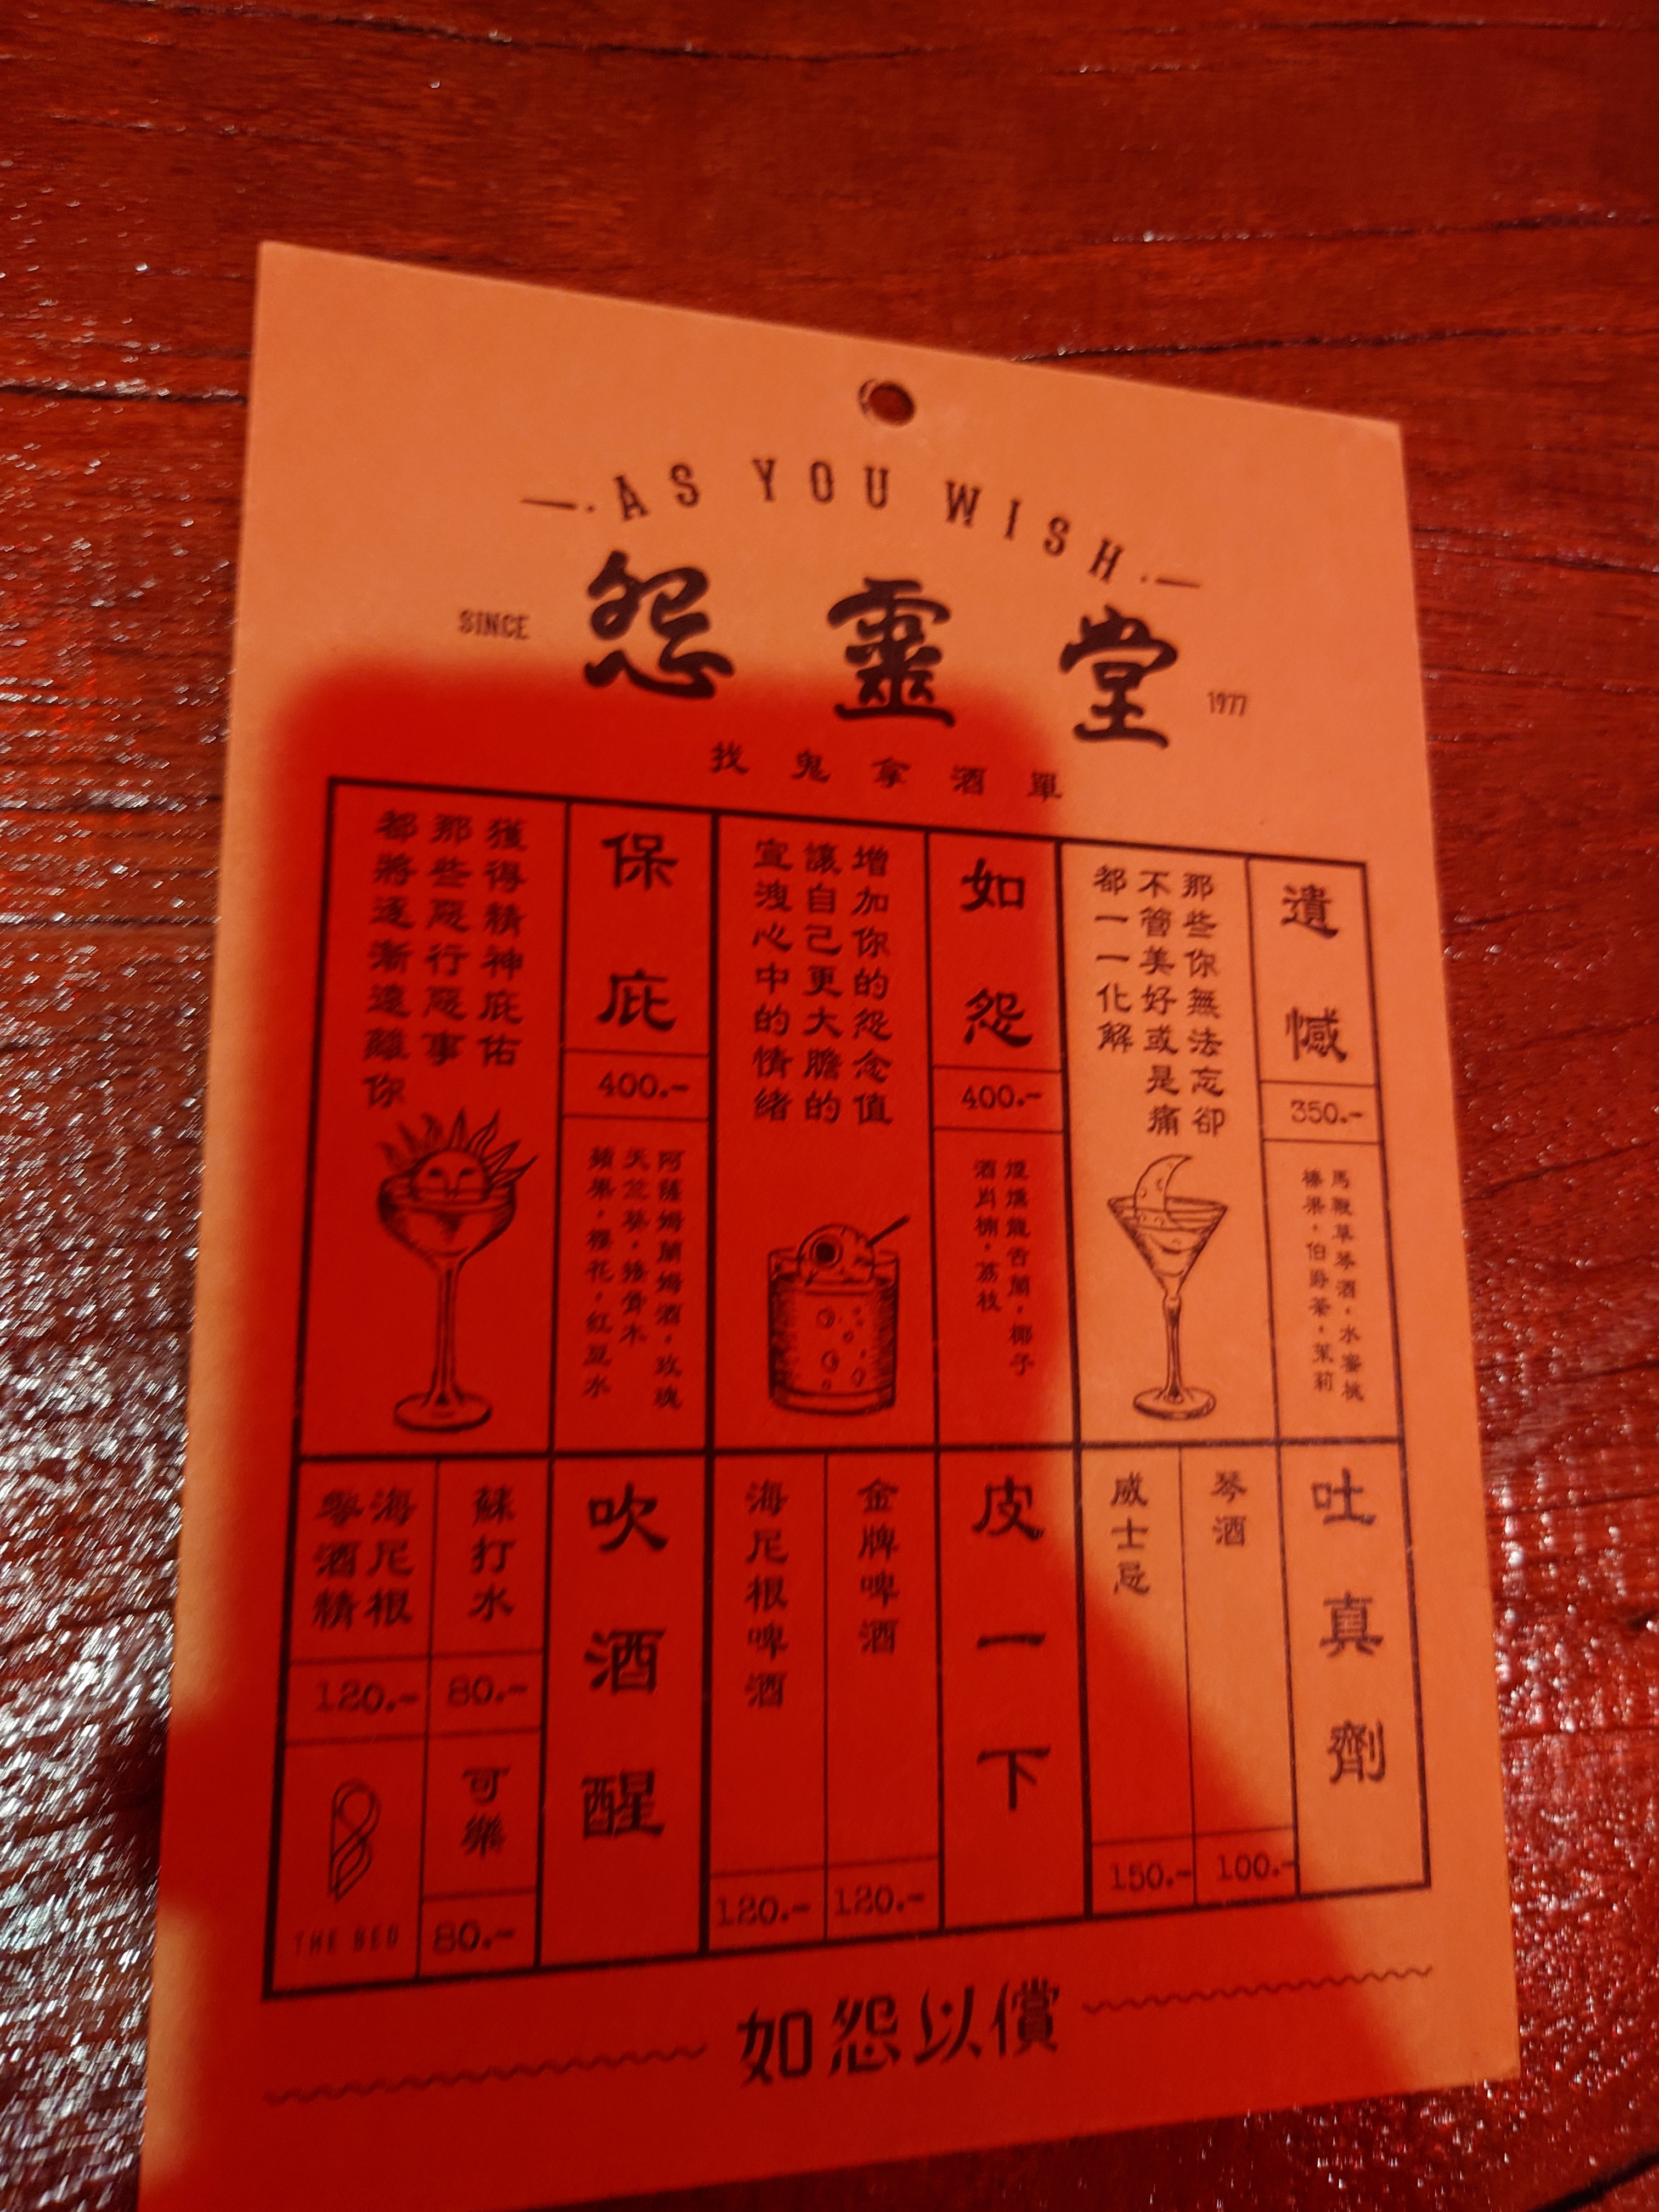 AS YOU WISH
SINCE 怨靈堂 1977
找鬼拿酒單
遺憾
350.-
馬鞭草琴酒，水蜜桃
榛果，伯爵茶，茉莉
那些你無法忘卻
不管美好或是痛
都一一化解
如怨
400.-
煙燻龍舌蘭，椰子
酒肖楠，荔枝
增加你的怨念值
讓自己更大膽的
宣洩心中的情緒
保庇
400.-
阿薩姆蘭姆酒，玫瑰
天竺葵，接骨木
蘋果，櫻花，紅豆水
獲得精神庇佑
那些惡行惡事
都將逐漸遠離你
吐真劑
琴酒
100.-
威士忌
150.-
皮一下
金牌啤酒
120.-
海尼根啤酒
120.-
吹酒醒
蘇打水
80.-
可樂
80.-
海尼根
零酒精
120.-
THE BED
如怨以償